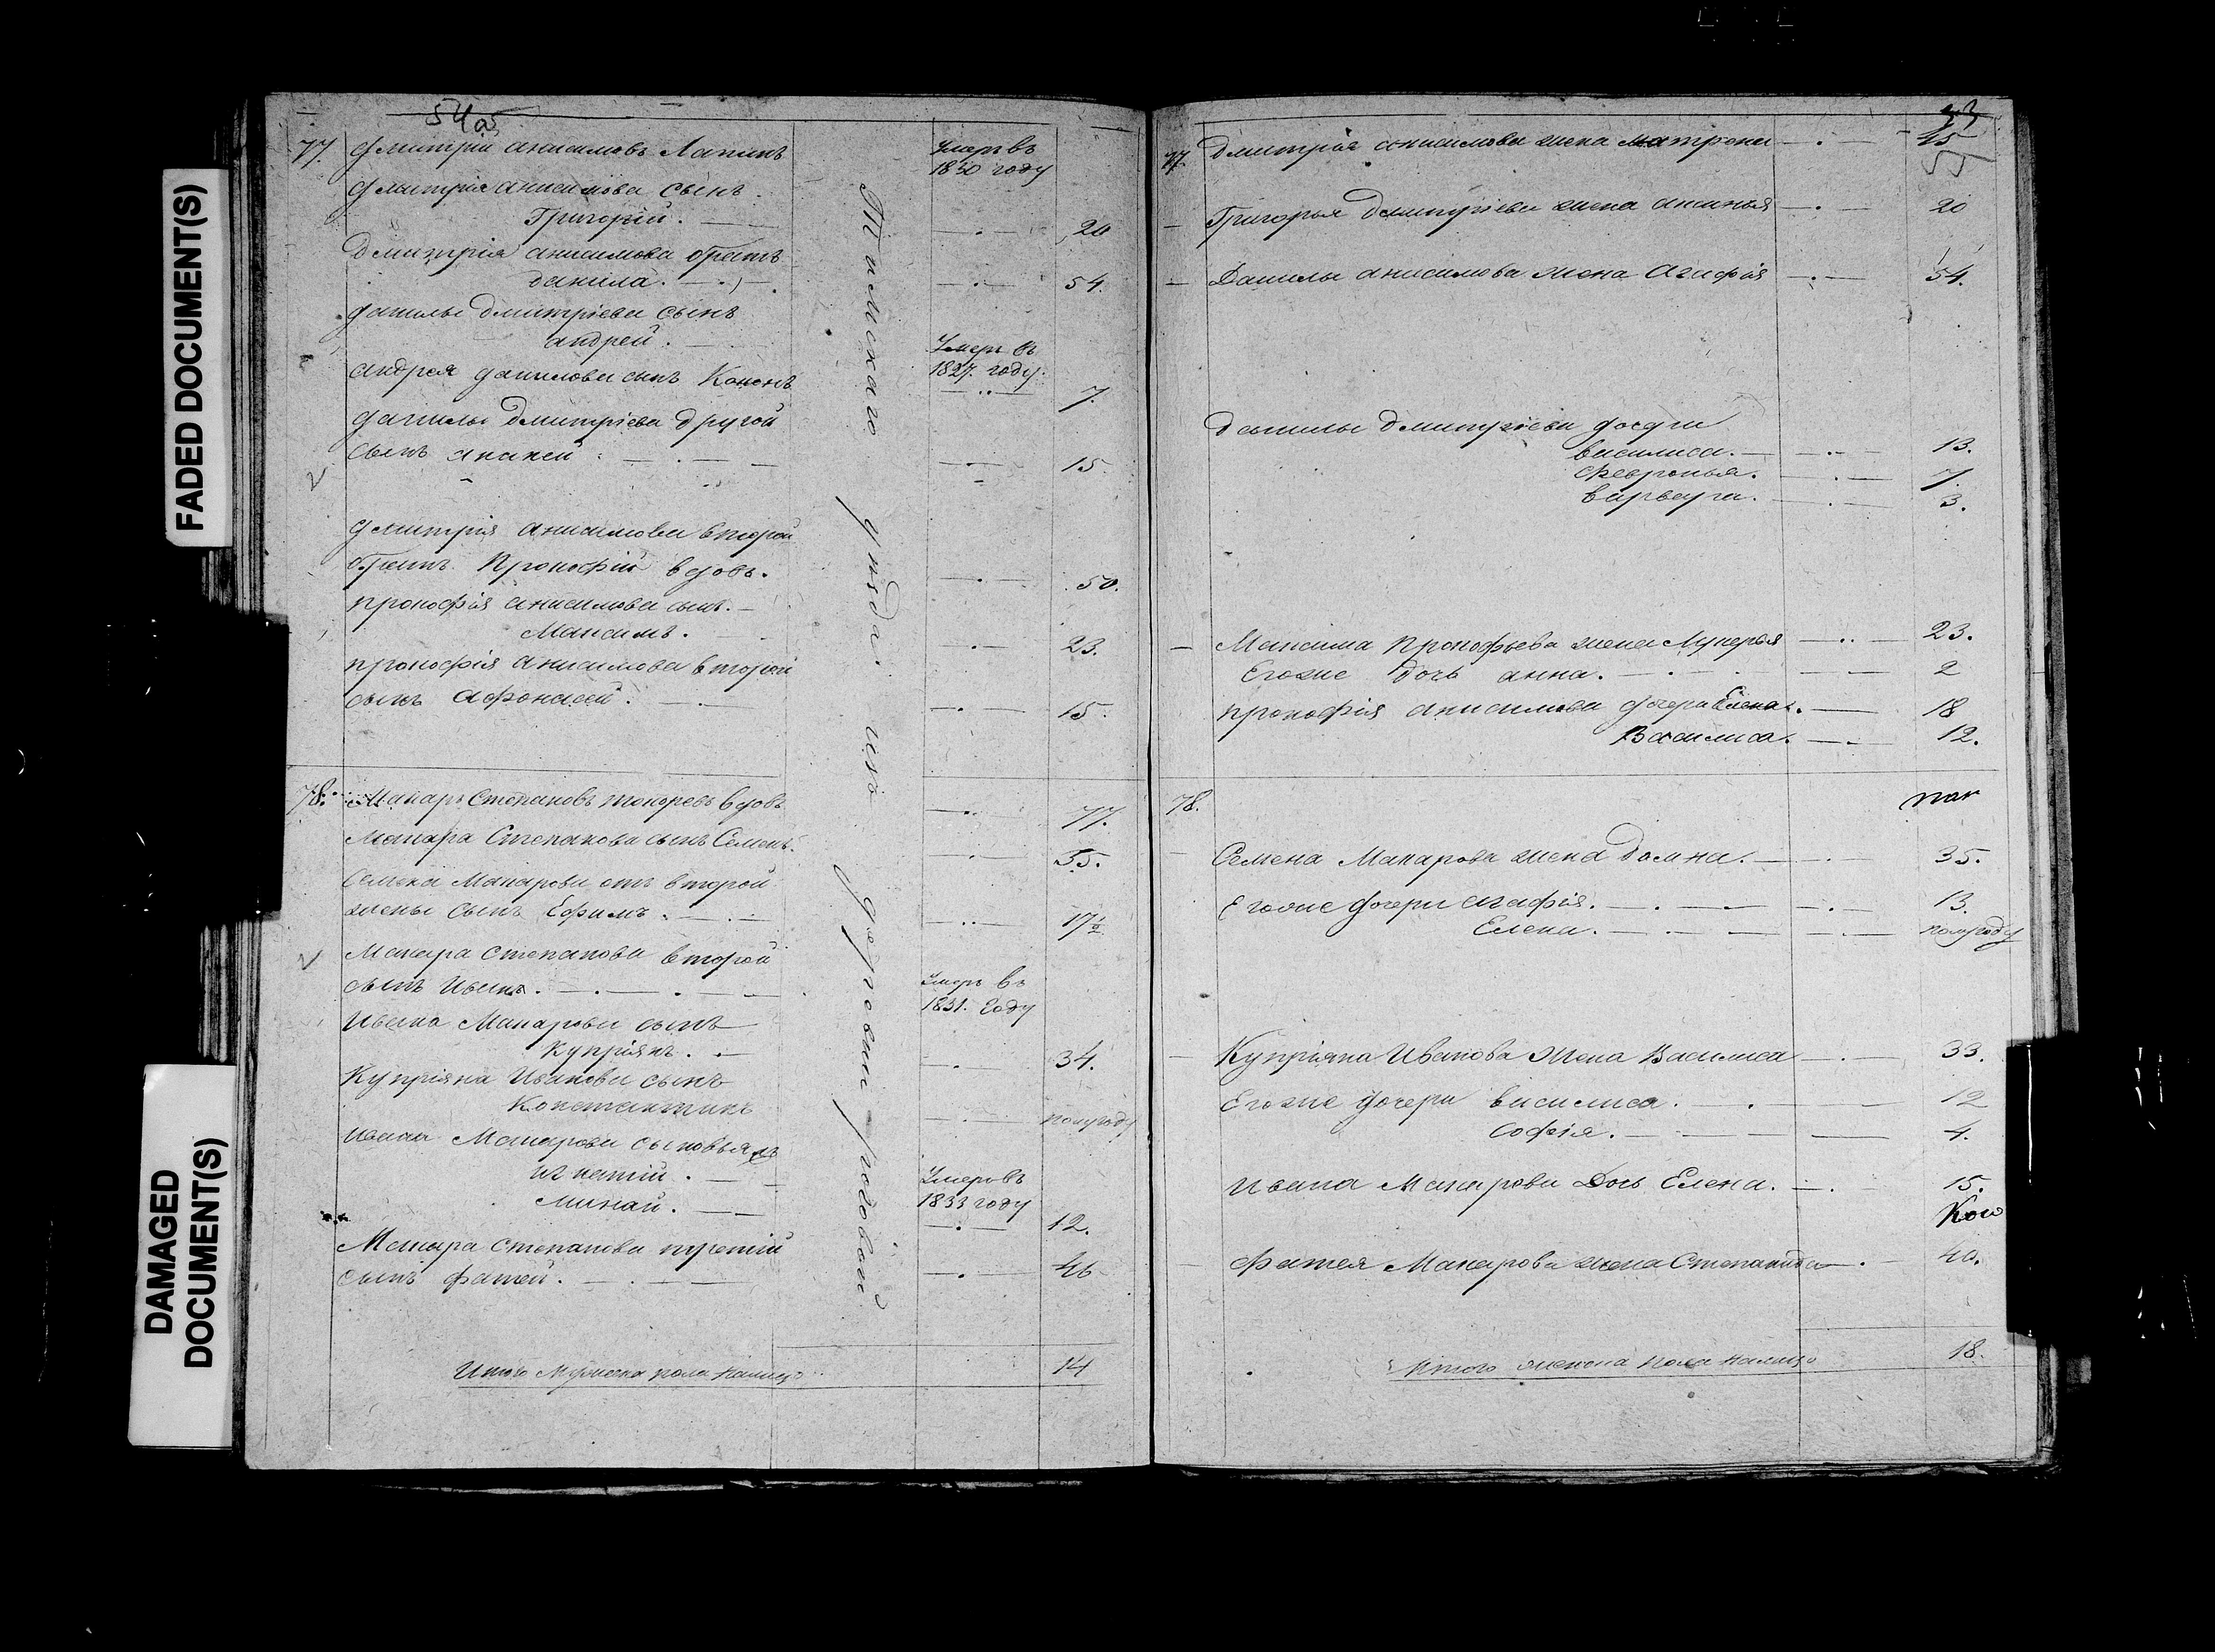 FADED DOCUMENT(S)
DAMAGED
DOCUMENT(S)
54об
77. Дмитрій анисимовъ Лапинъ
Умеръ въ
1830 году
Дмитрія анисимова сынъ
Григорій. 20
Дмитрія анисимова братъ
данила. 54.
данилы Дмитріева сынъ
андрей.
Умеръ въ
1827. году.
андрея данилова сынъ Кононъ 7.
данилы Дмитріева другой
сынъ ананей 15.
Дмитрія анисимова второй
братъ Прокофій вдовъ. 50.
прокофія анисимова сынъ.
Максимъ. 23.
прокофія анисимова второй
сынъ афонасей. 15.
78. Макаръ Степановъ токоревъ вдовъ 77.
Макара Степанова сынъ Семенъ. 55.
Семена Макарова отъ второй
жены сынъ Ефимъ. 17½
Макара степанова второй
сынъ Иванъ.
Умеръ въ
1831. году
Ивана Макарова сынъ
Купріянъ. 34.
Купріяна Иванова сынъ
Константинъ полугоду
Ивана Макарова сыновья
игнатій.
Умеръ въ
1833 году
Минай. 12.
Макара степанова третій
сынъ фатей. 46
Итого Мужеска пола налицо 14
уѣзда изъ деревни
53
77. Дмитрія анисимова жена матрона 45
Григорья Дмитріева жена аксинья 20
Данилы анисимова жена Агафія 54.
Данилы Дмитріева дочери
василиса. 13.
Февронья. 7.
варвара. 3.
Максима Прокофьева жена Лукерья 23.
Егоже дочь анна. 2
прокофія анисимова дочери Елена. 18
Василиса. 12.
78.
Семена Макарова жена Домна. 35.
Егоже дочери агафія. 13.
Елена. полугоду
Купріяна Иванова жена Василиса 33.
Егоже дочери василиса. 12
софія. 4.
Ивана Макарова Дочь Елена. 15.
фатея Макарова жена Степанида 40.
Итого женска пола налицо 18.